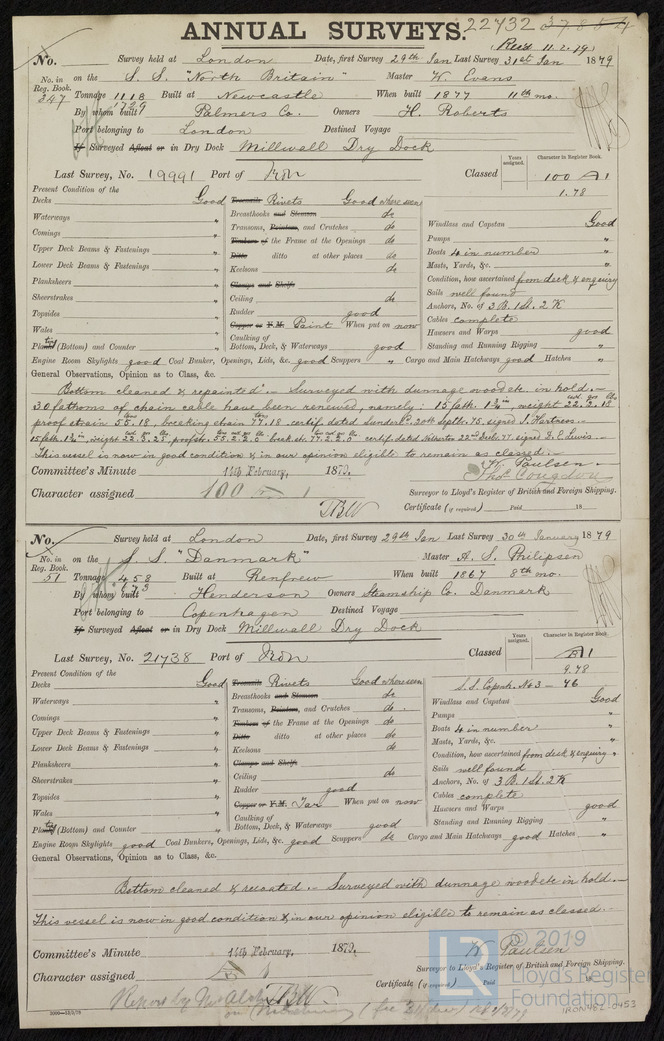 ANNUAL SURVEYS. 22432 37884
Recd 11.2.79
No. Survey held at London Date, first Survey 29th Jan Last Survey 31st Jan 1879
No. in Reg. Book. 347 on the S. S. "North Britain" Master W. Evans
Tonnage 1118 Built at Newcastle When built 1877 11th mo.
1729
By whom built Palmers Co. Owners H. Roberts
Port belonging to London Destined Voyage
If Surveyed Afloat or in Dry Dock Millwall Dry Dock
Years assigned. Character in Register Book.
Last Survey, No. 19991 Port of Iron Classed 100 A 1
1.78
Present Condition of the
Decks Good Treenails Rivets Good where seen
Waterways " Breasthooks and Stemson do
Comings " Transoms, Pointers, and Crutches do
Upper Deck Beams & Fastenings " Timbers of the Frame at the Openings do
Lower Deck Beams & Fastenings " Ditto ditto at other places do
Planksheers " Keelsons do
Sheerstrakes " Clamps and Shelfs
Topsides " Ceiling do
Wales " Rudder good
Plating (Bottom) and Counter " Copper or Y.M. Paint When put on now
Caulking of Bottom, Deck, & Waterways good
Windlass and Capstan Good
Pumps "
Boats 4 in number "
Masts, Yards, &c. "
Condition, how ascertained from deck & enquiry
Sails well found
Anchors, No. of 3 B. 1 St. 2 K
Cables complete
Hawsers and Warps good
Standing and Running Rigging "
Engine Room Skylights good Coal Bunker, Openings, Lids, &c. good Scuppers " Cargo and Main Hatchways good Hatches "
General Observations, Opinion as to Class, &c.
Bottom cleaned & repainted. - Surveyed with dunnage wood etc. in hold. -
30 fathoms of chain cable have been renewed, namely: 15 fath. 1¾ in, weight 22.2.18
proof strain 55.18, breaking strain 77.18, certif. dated Sunderld. 20th Septr. 75, signed J. Hartness. -
15 fath. 1¾ in, weight 22.3.25, proof str. 55.2.2.0 break. str. 77.2.2.0 certif. dated 22nd 77 signed Lewis. -
This vessel is now in good condition & in our opinion eligible to remain as classed. -
Committee's Minute 14th February, 1879. W. Paulsen
Thos. Congdon
Character assigned 100 A 1 Surveyor to Lloyd's Register of British and Foreign Shipping.
Certificate (if required) Paid 18
No. Survey held at London Date, first Survey 29th Jan Last Survey 30th January 1879
No. in Reg. Book. 51 on the S. S. "Danmark" Master A. S. Philipsen
Tonnage 458 Built at Renfrew When built 1867 8th mo.
673
By whom built Henderson Owners Steamship Co. Danmark
Port belonging to Copenhagen Destined Voyage
If Surveyed Afloat or in Dry Dock Millwall Dry Dock
Years assigned. Character in Register Book.
Last Survey, No. 21738 Port of Iron Classed A 1
9.78
S.S. Copenh. No 3 - 76
Present Condition of the
Decks Good Treenails Rivets Good where seen
Waterways " Breasthooks and Stemson do
Comings " Transoms, Pointers, and Crutches do.
Upper Deck Beams & Fastenings " Timbers of the Frame at the Openings do
Lower Deck Beams & Fastenings " Ditto ditto at other places do
Planksheers " Keelsons do
Sheerstrakes " Clamps and Shelfs
Topsides " Ceiling do
Wales " Rudder good
Plating (Bottom) and Counter " Copper or Y.M. Tar When put on now
Caulking of Bottom, Deck, & Waterways good
Windlass and Capstan Good
Pumps "
Boats 4 in number "
Masts, Yards, &c. "
Condition, how ascertained from deck & enquiry
Sails well found "
Anchors, No. of 3 B. 1 St. 2 K
Cables complete
Hawsers and Warps good
Standing and Running Rigging "
Engine Room Skylights good Coal Bunkers, Openings, Lids, &c. good Scuppers do Cargo and Main Hatchways good Hatches "
General Observations, Opinion as to Class, &c.
Bottom cleaned & recoated. - Surveyed with dunnage wood etc in hold. -
This vessel is now in good condition & in our opinion eligible to remain as classed. -
Committee's Minute 14th February, 1879. W. Paulsen
Surveyor to Lloyd's Register of British and Foreign Shipping.
Character assigned A 1
Certificate (if required) Paid 18
Report by
© 2019
LR Lloyd's Register Foundation
IRON482-0453